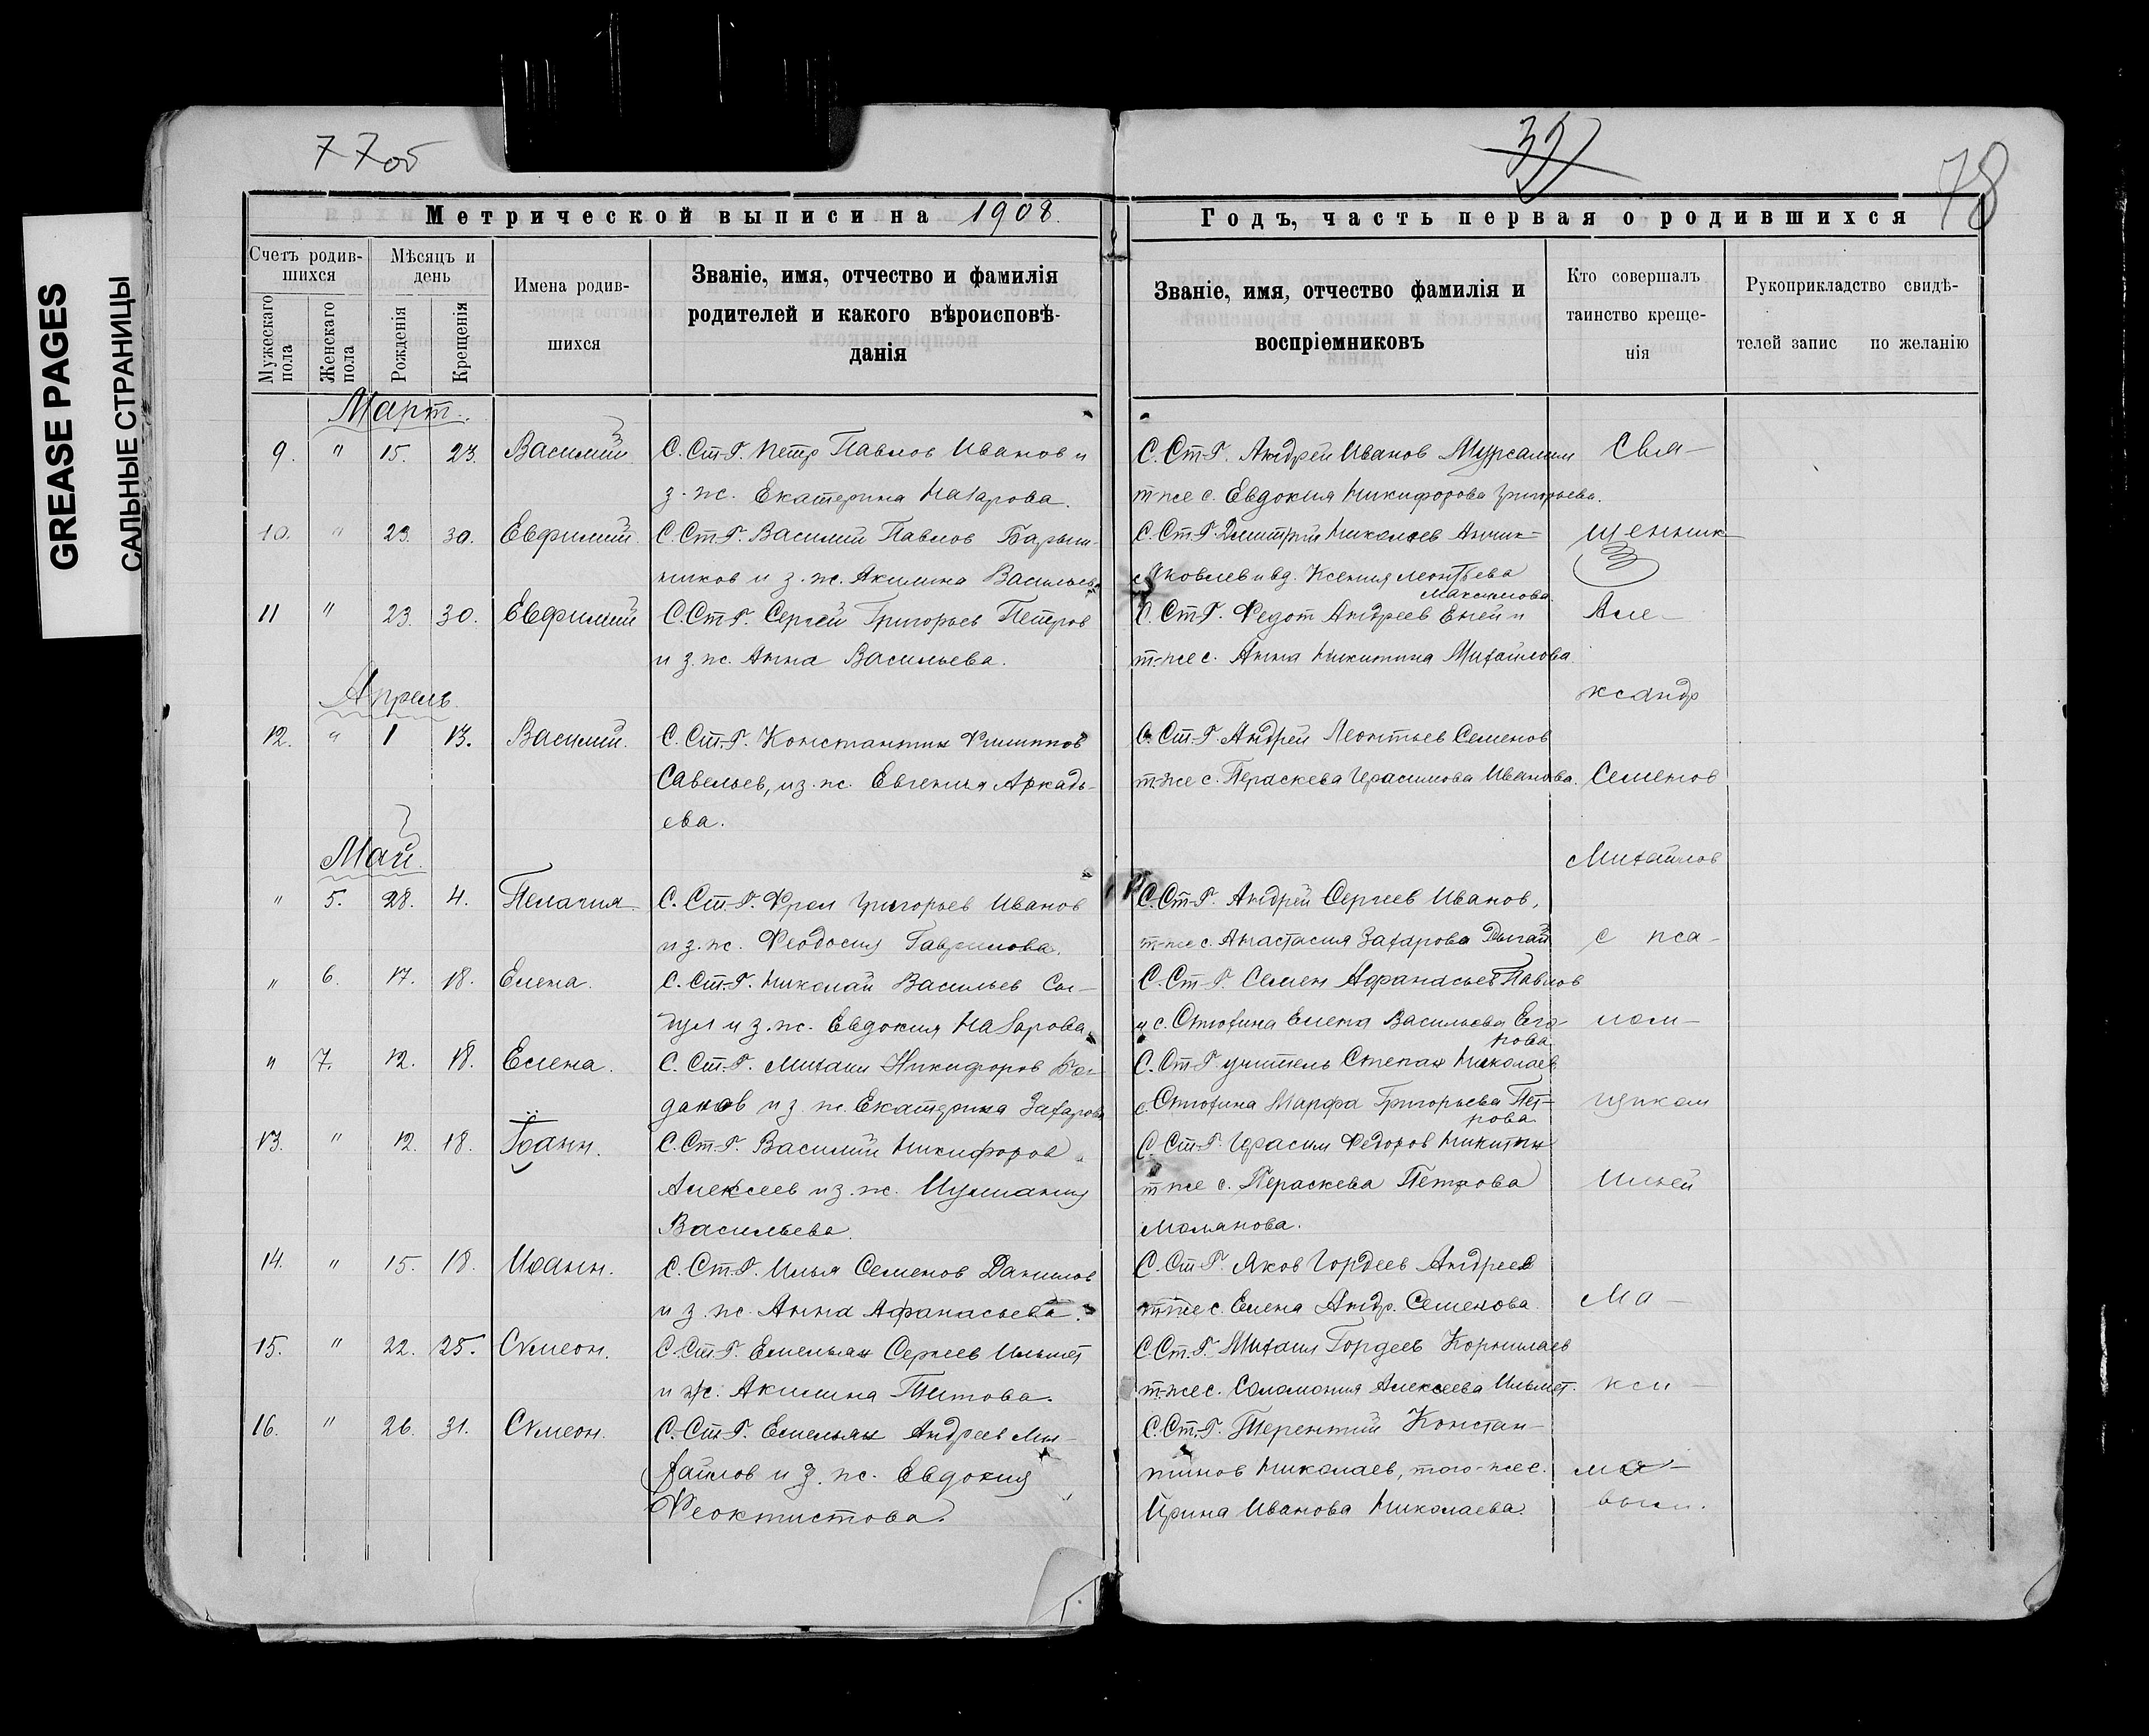 77об
39
78
GREASE PAGES
САЛЬНЫЕ СТРАНИЦЫ
Метрической выписи на 1908.
Годъ, часть первая о родившихся
Счетъ родившихся
Мужескаго пола
Женскаго пола
Мѣсяцъ и день
Рожденія
Крещенія
Имена родившихся
Званіе, имя, отчество и фамилія
родителей и какого вѣроисповѣ-
данія
Званіе, имя, отчество фамилія и
воспріемниковъ
Кто совершалъ
таинство креще-
нія
Рукоприкладство свидѣ-
телей запис по желанію
Март.
9. " 15. 23. Василий. С. Ст-Г. Петр Павлов Иванов и С. Ст-Г. Андрей Иванов Мурсалим Свя-
з. ж. Екатерина Назарова. т-же с. Евдокия Никифорова Григорьева.
10. " 23. 30. Евфимий. С. Ст-Г. Василий Павлов Барыш- С. Ст-Г. Димитрий Николаев щенник
ников и з. ж. Акилина Васильева Яковлев и вд. Ксения Леонтьева
Максимова.
11 " 23. 30. Евфимий С. Ст-Г. Сергей Григорьев Петров С. Ст-Г. Федот Андреев Еней и Але-
и з. ж. Анна Васильева. т-же с. Анна Никитина Михайлова.
Апрель.
ксандр
12. " 1 13. Василий. С. Ст.-Г. Константин Филиппов С. Ст.-Г. Андрей Леонтьев Семенов
Савельев, и з. ж. Евгения Аркадь- т-же с. Параскева Герасимова Иванова. Семенов
ева.
Май.
Михайлов
" 5. 28. 4. Пелагия. С. Ст.-Г. Фрол Григорьев Иванов С. Ст-Г. Андрей Сергеев Иванов,
и з. ж. Феодосия Гаврилова. т-же с. Анастасия Захарова с пса-
" 6. 17. 18. Елена. С. Ст.-Г. Николай Васильев Сы- С. Ст-Г. Семен Афанасьев Павлов
и з. ж. Евдокия Назарова. и с. Елена Васильева Его- лом-
рова
" 7. 12. 18. Елена. С. Ст.-Г. Михаил Никифоров Бог- С. Ст-Г. учитель Степан Николаев
данов и з. ж. Екатерина Захарова с. Марфа Григорьева Пет- щиком
рова.
13. " 12. 18. Іоанн. С. Ст-Г. Василий Никифоров С. Ст-Г. Герасим Федоров Никитин
Алексеев и з. ж. Иулиания т-же с. Параскева Петрова Ильей
Васильева. Моланова.
14. " 15. 18. Иоанн. С. Ст.-Г. Илья Семенов Данилов С. Ст-Г. Яков Гордеев Андреев
и з. ж. Анна Афанасьева. т-же с. Елена Андр. Семенова. Ма-
15. " 22. 25. Симеон. С. Ст.-Г. Емельян Сергеев Ильмет С. Ст.-Г. Михаил Гордеев Корнилаев
и ж. Акилина Титова. т-же с. Соломония Алексеева Ильмет. кси-
16. " 26. 31. Симеон. С. Ст-Г. Емельян Андреев Ми- С. Ст.-Г. Терентий Констан-
хайлов и з. ж. Евдокия тинов Николаев, того-же с. мо-
Феоктистова. Ирина Иванова Николаева. вым.